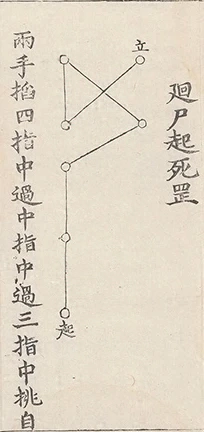 廻尸起死罡
立
起
兩手搯四指中過中指中過三指中挑自